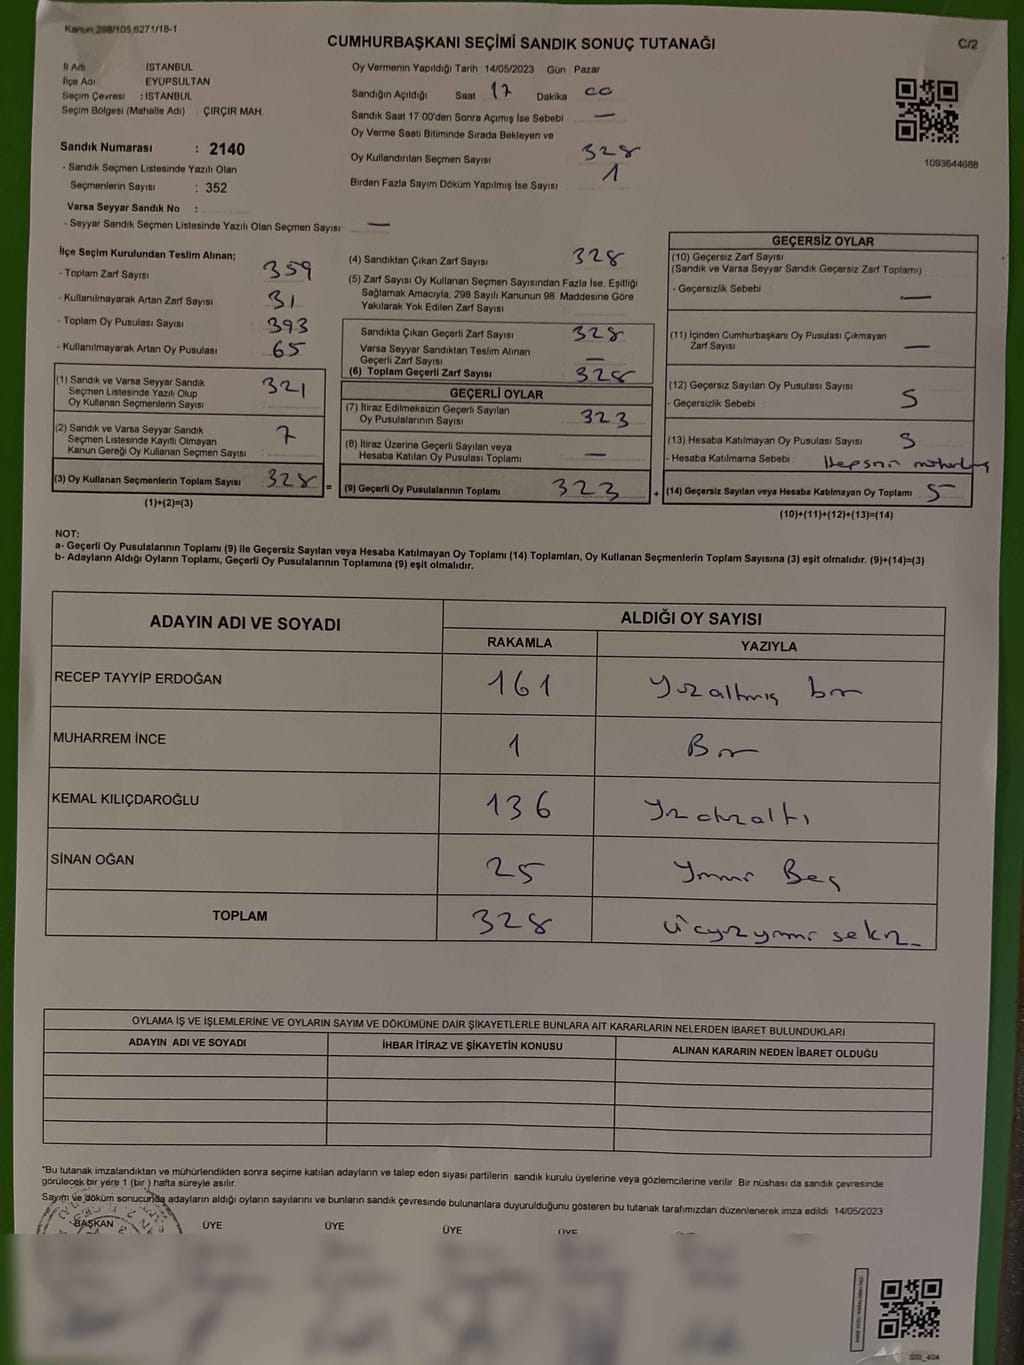 Kanun 298/105,6271/18-1
CUMHURBAŞKANI SEÇİMİ SANDIK SONUÇ TUTANAĞI
C/2
İl Adı İSTANBUL
İlçe Adı EYÜPSULTAN
Seçim Çevresi : İSTANBUL
Seçim Bölgesi (Mahalle Adı) ÇIRÇIR MAH.
Sandık Numarası : 2140
- Sandık Seçmen Listesinde Yazılı Olan
Seçmenlerin Sayısı : 352
Varsa Seyyar Sandık No :
- Seyyar Sandık Seçmen Listesinde Yazılı Olan Seçmen Sayısı: —
Oy Vermenin Yapıldığı Tarih 14/05/2023 Gün Pazar
Sandığın Açıldığı Saat 17 Dakika 00
Sandık Saat 17:00'den Sonra Açımış İse Sebebi —
Oy Verme Saati Bitiminde Sırada Bekleyen ve
Oy Kullandırılan Seçmen Sayısı 328
Birden Fazla Sayım Döküm Yapılmış İse Sayısı 1
1093644686
İlçe Seçim Kurulundan Teslim Alınan;
- Toplam Zarf Sayısı 359
- Kullanılmayarak Artan Zarf Sayısı 31
- Toplam Oy Pusulası Sayısı 393
- Kullanılmayarak Artan Oy Pusulası 65
(1) Sandık ve Varsa Seyyar Sandık
Seçmen Listesinde Yazılı Olup
Oy Kullanan Seçmenlerin Sayısı 321
(2) Sandık ve Varsa Seyyar Sandık
Seçmen Listesinde Kayıtlı Olmayan
Kanun Gereği Oy Kullanan Seçmen Sayısı 7
(3) Oy Kullanan Seçmenlerin Toplam Sayısı 328 =
(1)+(2)=(3)
(4) Sandıktan Çıkan Zarf Sayısı 328
(5) Zarf Sayısı Oy Kullanan Seçmen Sayısından Fazla İse, Eşitliği
Sağlamak Amacıyla, 298 Sayılı Kanunun 98. Maddesine Göre
Yakılarak Yok Edilen Zarf Sayısı
Sandıkta Çıkan Geçerli Zarf Sayısı 328
Varsa Seyyar Sandıktan Teslim Alınan
Geçerli Zarf Sayısı —
(6) Toplam Geçerli Zarf Sayısı 328
GEÇERLİ OYLAR
(7) İtiraz Edilmeksizin Geçerli Sayılan
Oy Pusulalarının Sayısı 323
(8) İtiraz Üzerine Geçerli Sayılan veya
Hesaba Katılan Oy Pusulası Toplamı —
(9) Geçerli Oy Pusulalarının Toplamı 323 +
GEÇERSİZ OYLAR
(10) Geçersiz Zarf Sayısı
(Sandık ve Varsa Seyyar Sandık Geçersiz Zarf Toplamı)
- Geçersizlik Sebebi —
(11) İçinden Cumhurbaşkanı Oy Pusulası Çıkmayan
Zarf Sayısı —
(12) Geçersiz Sayılan Oy Pusulası Sayısı
- Geçersizlik Sebebi : 5
(13) Hesaba Katılmayan Oy Pusulası Sayısı 5
- Hesaba Katılmama Sebebi :
(14) Geçersiz Sayılan veya Hesaba Katılmayan Oy Toplamı 5
(10)+(11)+(12)+(13)=(14)
NOT:
a- Geçerli Oy Pusulalarının Toplamı (9) ile Geçersiz Sayılan veya Hesaba Katılmayan Oy Toplamı (14) Toplamları, Oy Kullanan Seçmenlerin Toplam Sayısına (3) eşit olmalıdır. (9)+(14)=(3)
b- Adayların Aldığı Oyların Toplamı, Geçerli Oy Pusulalarının Toplamına (9) eşit olmalıdır.
ADAYIN ADI VE SOYADI
ALDIĞI OY SAYISI
RAKAMLA YAZIYLA
RECEP TAYYİP ERDOĞAN 161 Yüzaltmış bir
MUHARREM İNCE 1 Bir
KEMAL KILIÇDAROĞLU 136 Yüzotuzaltı
SİNAN OĞAN 25 Yirmi Beş
TOPLAM 328 Üçyüzyirmi sekiz
OYLAMA İŞ VE İŞLEMLERİNE VE OYLARIN SAYIM VE DÖKÜMÜNE DAİR ŞİKAYETLERLE BUNLARA AİT KARARLARIN NELERDEN İBARET BULUNDUKLARI
ADAYIN ADI VE SOYADI İHBAR İTİRAZ VE ŞİKAYETİN KONUSU ALINAN KARARIN NEDEN İBARET OLDUĞU
*Bu tutanak imzalandıktan ve mühürlendikten sonra seçime katılan adayların ve talep eden siyasi partilerin sandık kurulu üyelerine veya gözlemcilerine verilir. Bir nüshası da sandık çevresinde
görülecek bir yere 1 (bir ) hafta süreyle asılır.
Sayım ve döküm sonucunda adayların aldığı oyların sayılarını ve bunların sandık çevresinde bulunanlara duyurulduğunu gösteren bu tutanak tarafımızdan düzenlenerek imza edildi 14/05/2023
BAŞKAN ÜYE ÜYE ÜYE ÜYE